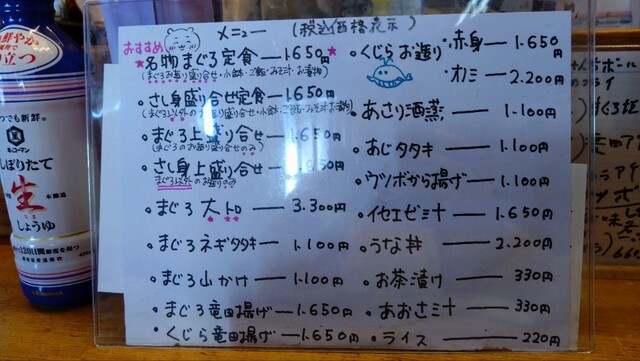 メニュー (税込価格表示)
おすすめ
名物まぐろ定食 1.650円
(まぐろお造り盛り合せ・小鉢・ご飯・みそ汁・お漬物)
さし身盛り合せ定食 1.650円
まぐろ上盛り合せ 1.650円
(まぐろのお造り盛り合せのみ)
さし身上盛り合せ
まぐろ以外のお造りのみ
まぐろ大トロ 3.300円
まぐろネギタタキ 1.100円
まぐろ山かけ 1.100円
まぐろ竜田揚げ 1.650円
くじら竜田揚げ 1.650円
くじらお造り・赤身 1.650円
・オノミ 2.200円
あさり酒蒸 1.100円
あじタタキ 1.100円
ウツボから揚げ 1.100円
イセエビ汁 1.650円
うな丼 2.200円
お茶漬け 330円
あおさ汁 330円
ライス 220円
いつでも新鮮
キッコーマン
しぼりたて
生
しょうゆ